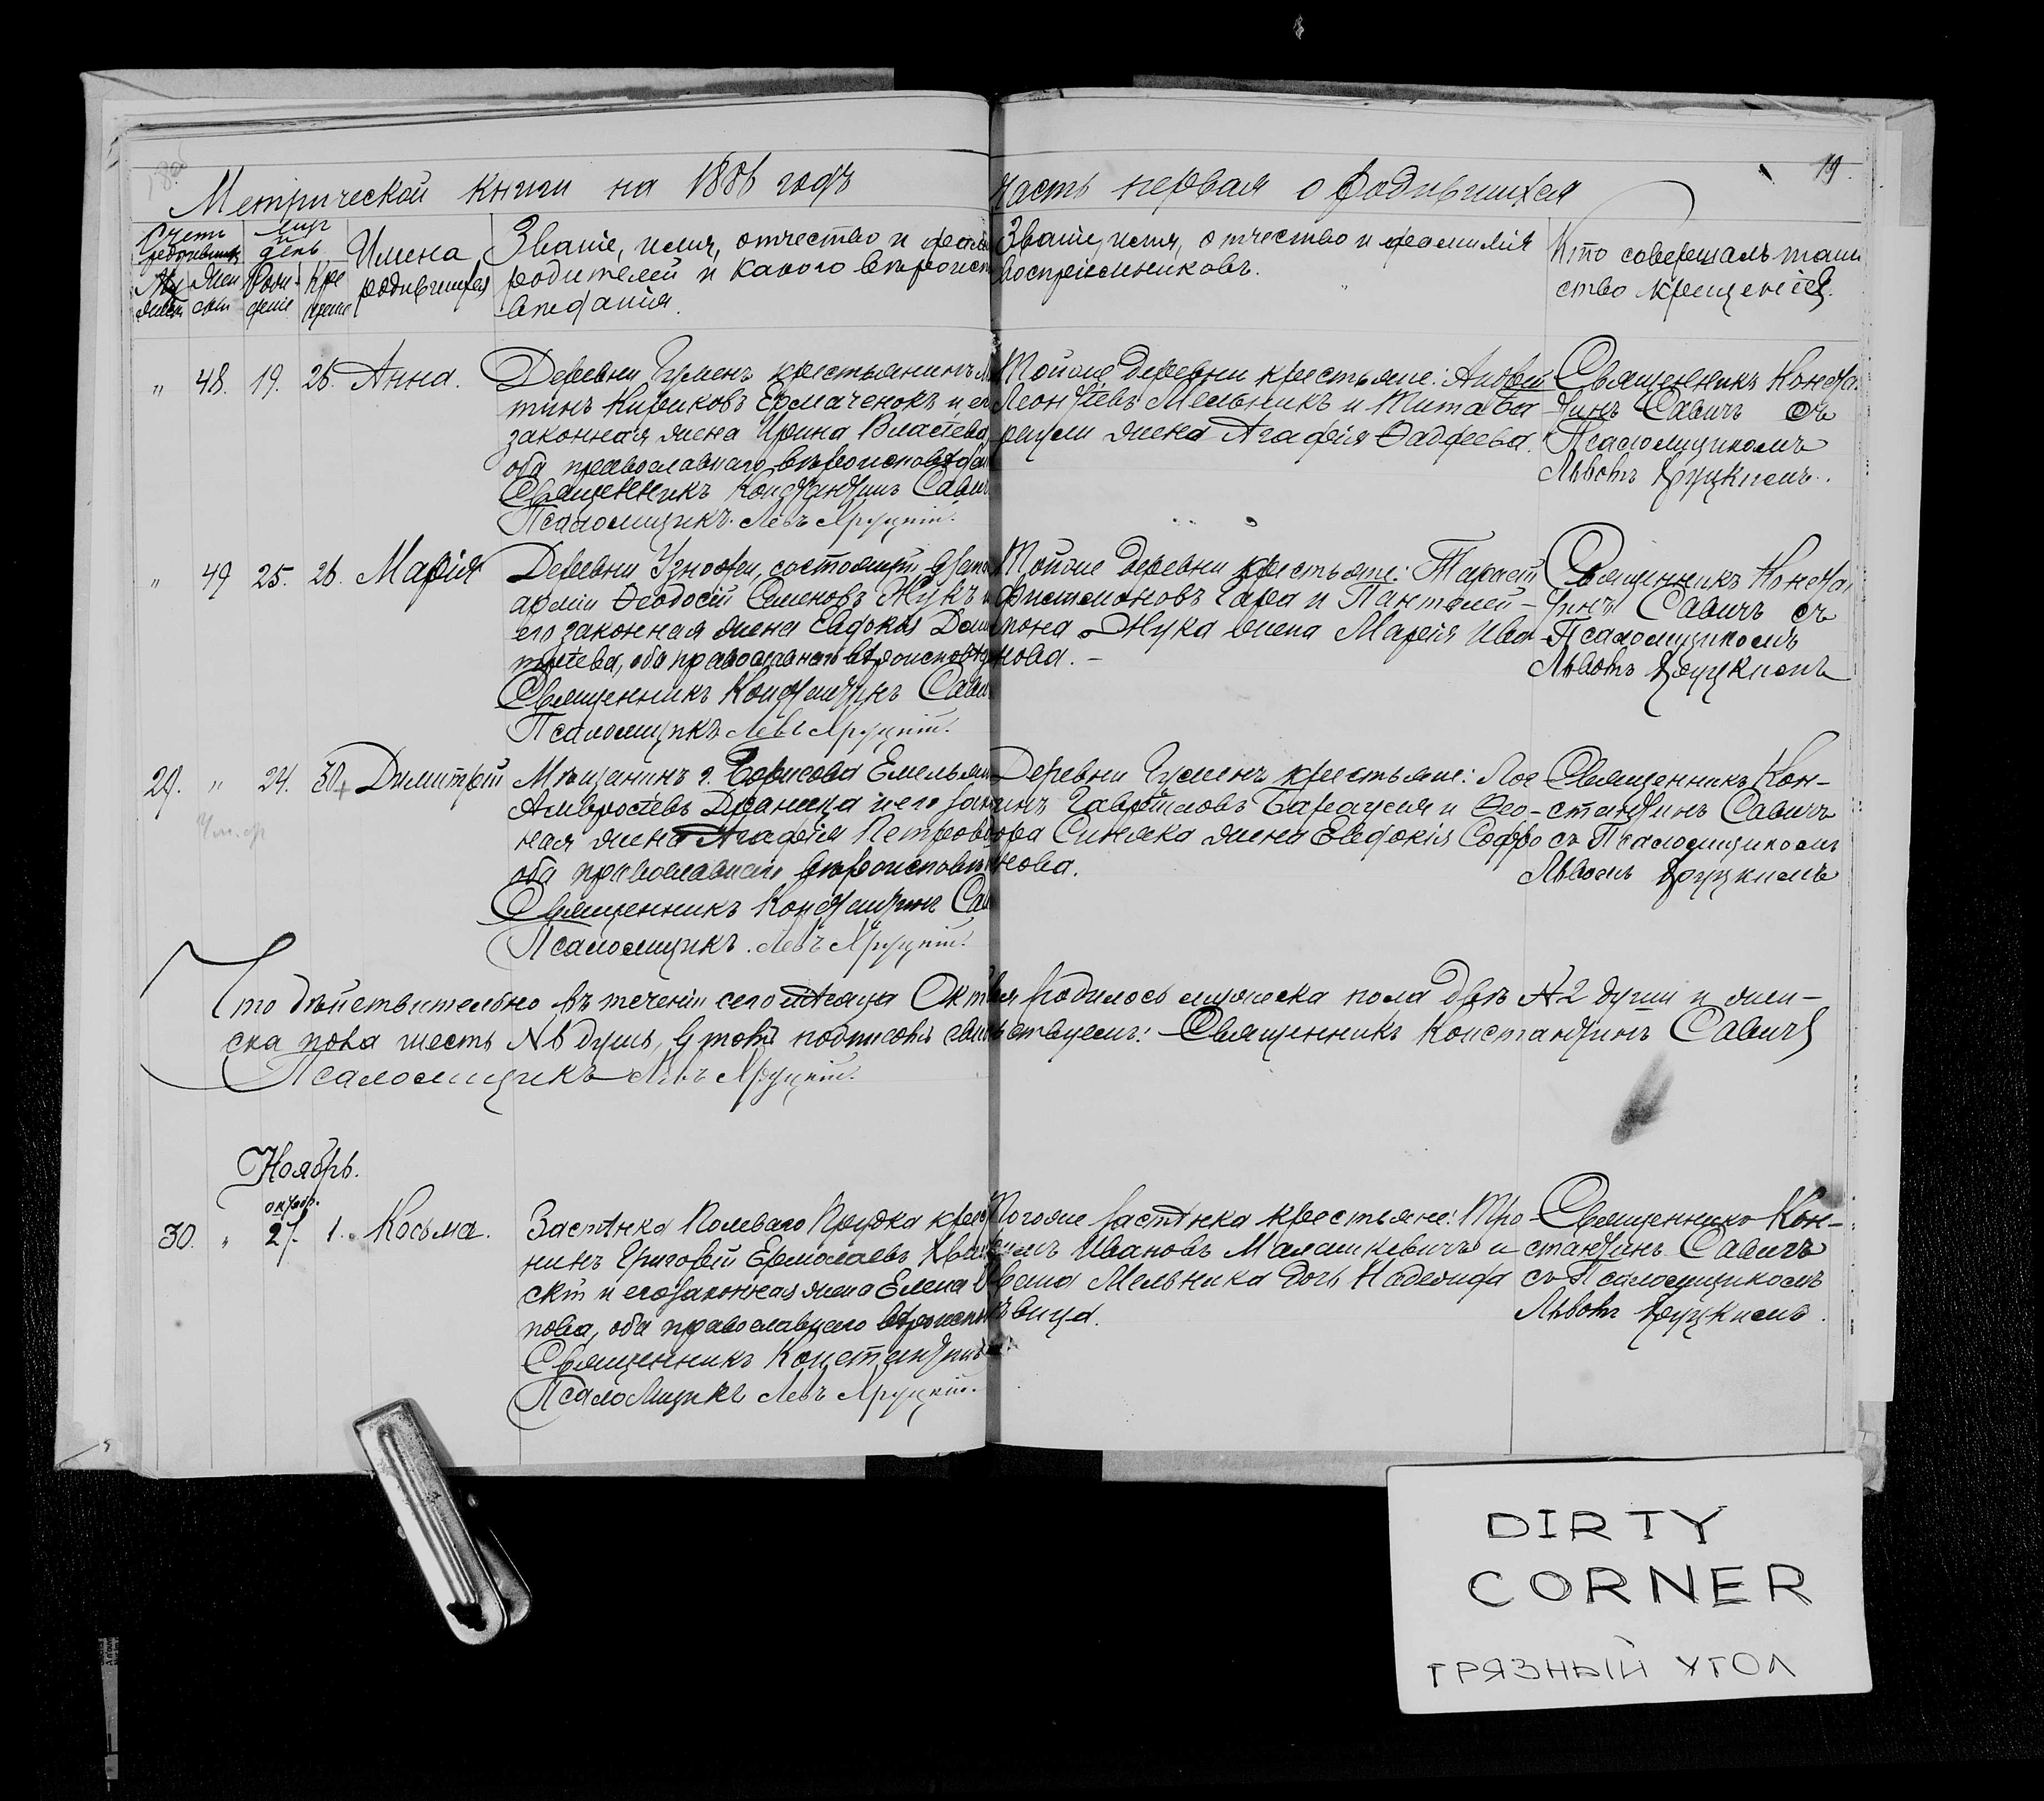 19.
Метрической книги на 1886 годъ
часть первая о родившихся
Счетъ родившихся
день
Имена родившихся
Званіе, имя, отчество и
родителей и какого
вѣроданія.
Званіе, имя, отчество и фамилія
воспріемниковъ.
Кто совершалъ таин
ство крещенія.
" 48. 19. 26. Анна.
Деревни крестьянинъ
тинъ Кириковъ Ермаченокъ и
законная жена Ирина Власіева,
оба православнаго
Священникъ Константинъ Савич
Псаломщикъ Левъ Хруцкій.
Тойже деревни крестьяне: Андрей
Леонтіевъ Мельникъ и Тита Ба-
рауси жена Агафія Фадѣева.
Священникъ Конста
тинъ Савичъ съ
Псаломщикомъ
Львомъ Хруцкимъ.
" 49 25. 26. Марія
Деревни Узножи, состоящій въ запа
арміи Ѳеодосій Семеновъ Жукъ и
его законная жена Евдокія Дими
тріева, оба православнаго
Священникъ Константинъ Сави
Псаломщикъ Левъ Хруцкій.
Тойже деревни крестьяне: Тарасій
Филимоновъ Гара и Пантелей-
мона Жука жена Марія Ива-
нова.-
Священникъ Конста
тинъ Савичъ съ
Псаломщикомъ
Львомъ Хруцкимъ
29. " 24. 30. Димитрій
Мѣщанинъ г. Борисова Емельян
Амвросіевъ Драница и его зак
ная жена Агафія Петрова
оба православнаго
Священникъ Константинъ Сав
Псаломщикъ Левъ Хруцкій.
Деревни крестьяне: Лог
инъ Гавріиловъ Барауся и Ѳео-
дора Синяка жена Евдокія Софро
нова.
Священникъ Кон-
стантинъ Савичъ
съ Псаломщикомъ
Львомъ Хруцкимъ
Что дѣйствительно въ теченіи сего мѣсяца Октября родилось мужеска пола двѣ №2 души и жен-
ска пола шесть №6 душъ, въ томъ подписомъ свидѣтельствуемъ: Священникъ Константинъ Савичъ
Псаломщикъ Левъ Хруцкій.
Ноябрь.
октяб.
30. " 27. 1. Косьма.
Застѣнка Полеваго Прудка крест
нинъ Григорій Ермолаевъ
скій и его законная жена Елена
пова, оба православнаго
Священникъ Константинъ
Псаломщикъ Левъ Хруцкій.
Тогоже застѣнка крестьяне: Тро-
Ивановъ Малашкевичъ и
Ивана Мельника дочь Надежда
вица.
Священникъ Кон-
стантинъ Савичъ
съ Псаломщикомъ
Львомъ Хруцкимъ.
DIRTY
CORNER
ГРЯЗНЫЙ УГОЛ